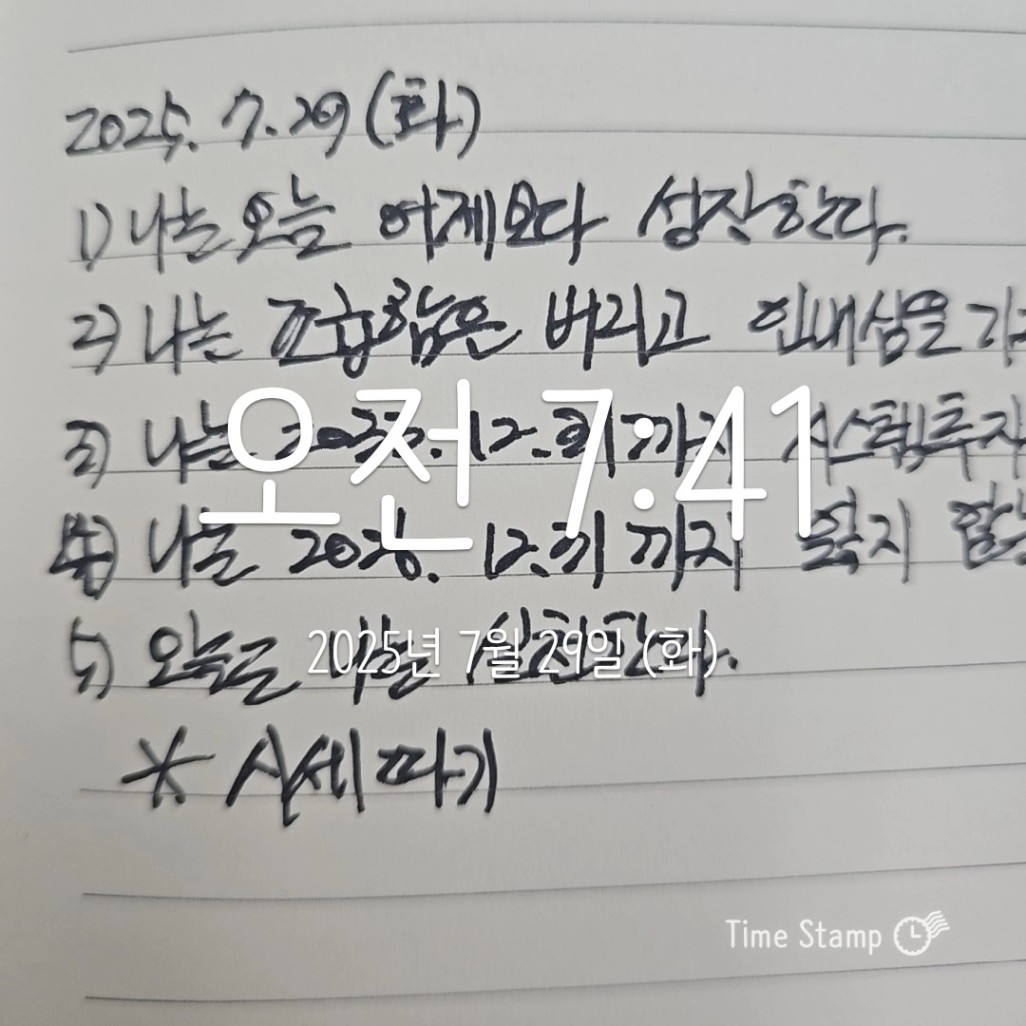 2025. 7. 29 (화)
1) 나는 오늘 어제보다 성장한다.
2) 나는 조급함은 버리고 인내심을
3) 나는 12. 31 까지 시스템투자
오전 7:41
4) 나는 2026. 12. 31 까지 잃지
5) 오늘도 나는 실천한다.
2025년 7월 29일 (화)
※ 시세따기
Time Stamp